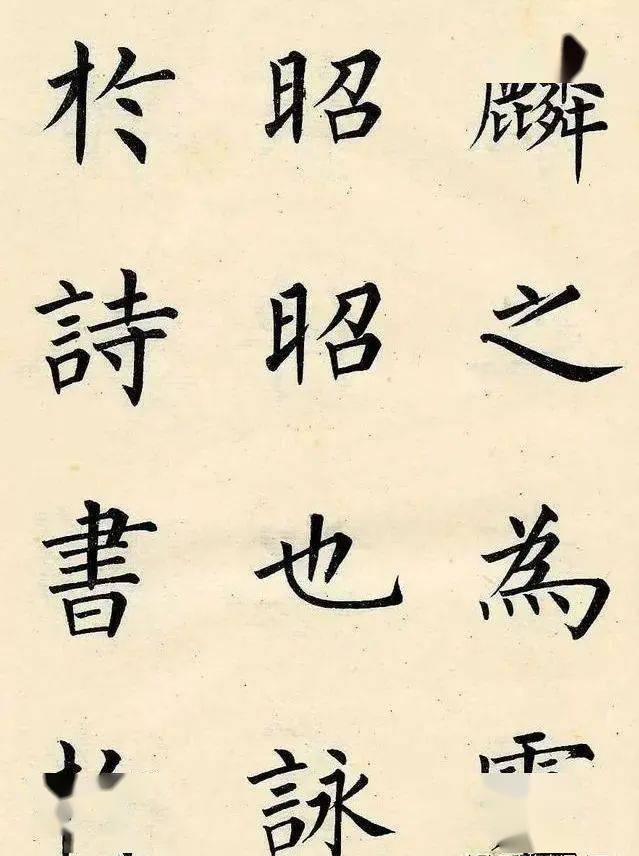 麟之為
昭昭也詠
於詩書